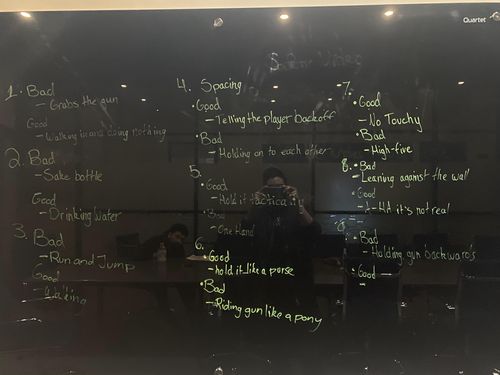 Quartet
1. Bad
- Grabs the gun
Good
- Walking in and doing nothing
2. Bad
- Sake bottle
Good
- Drinking Water
3. Bad
- Run and Jump
Good
- Walking
4. Spacing
• Good
- Telling the player back off
• Bad
- Holding on to each other
5.
• Good
- Hold it tactically
• Bad
- One Hand
6.
• Good
- hold it like a purse
• Bad
- Riding gun like a pony
7.
• Good
- No Touchy
• Bad
- High-five
8. • Bad
- Leaning against the wall
• Good
it's not real
• Bad
- Holding gun backwards
• Good
-